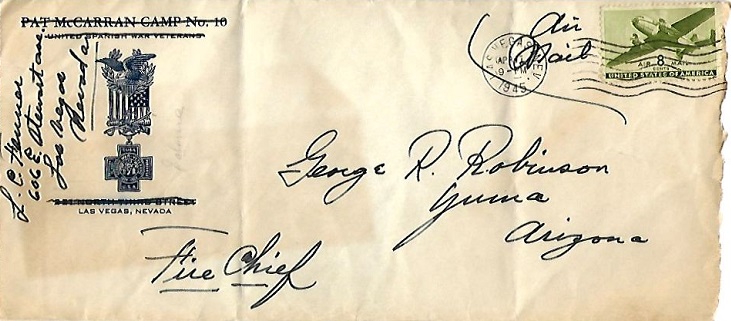 PAT McCARRAN CAMP No. 10
UNITED SPANISH WAR VETERANS
606 E.
Las Vegas
Nevada
NORTH THIRD STREET
LAS VEGAS, NEVADA
Air
Mail
LAS VEGAS, NEV.
9 - PM
1945
AIR 8 MAIL
CENTS
UNITED STATES OF AMERICA
George R. Robinson
Yuma
Arizona
Fire Chief